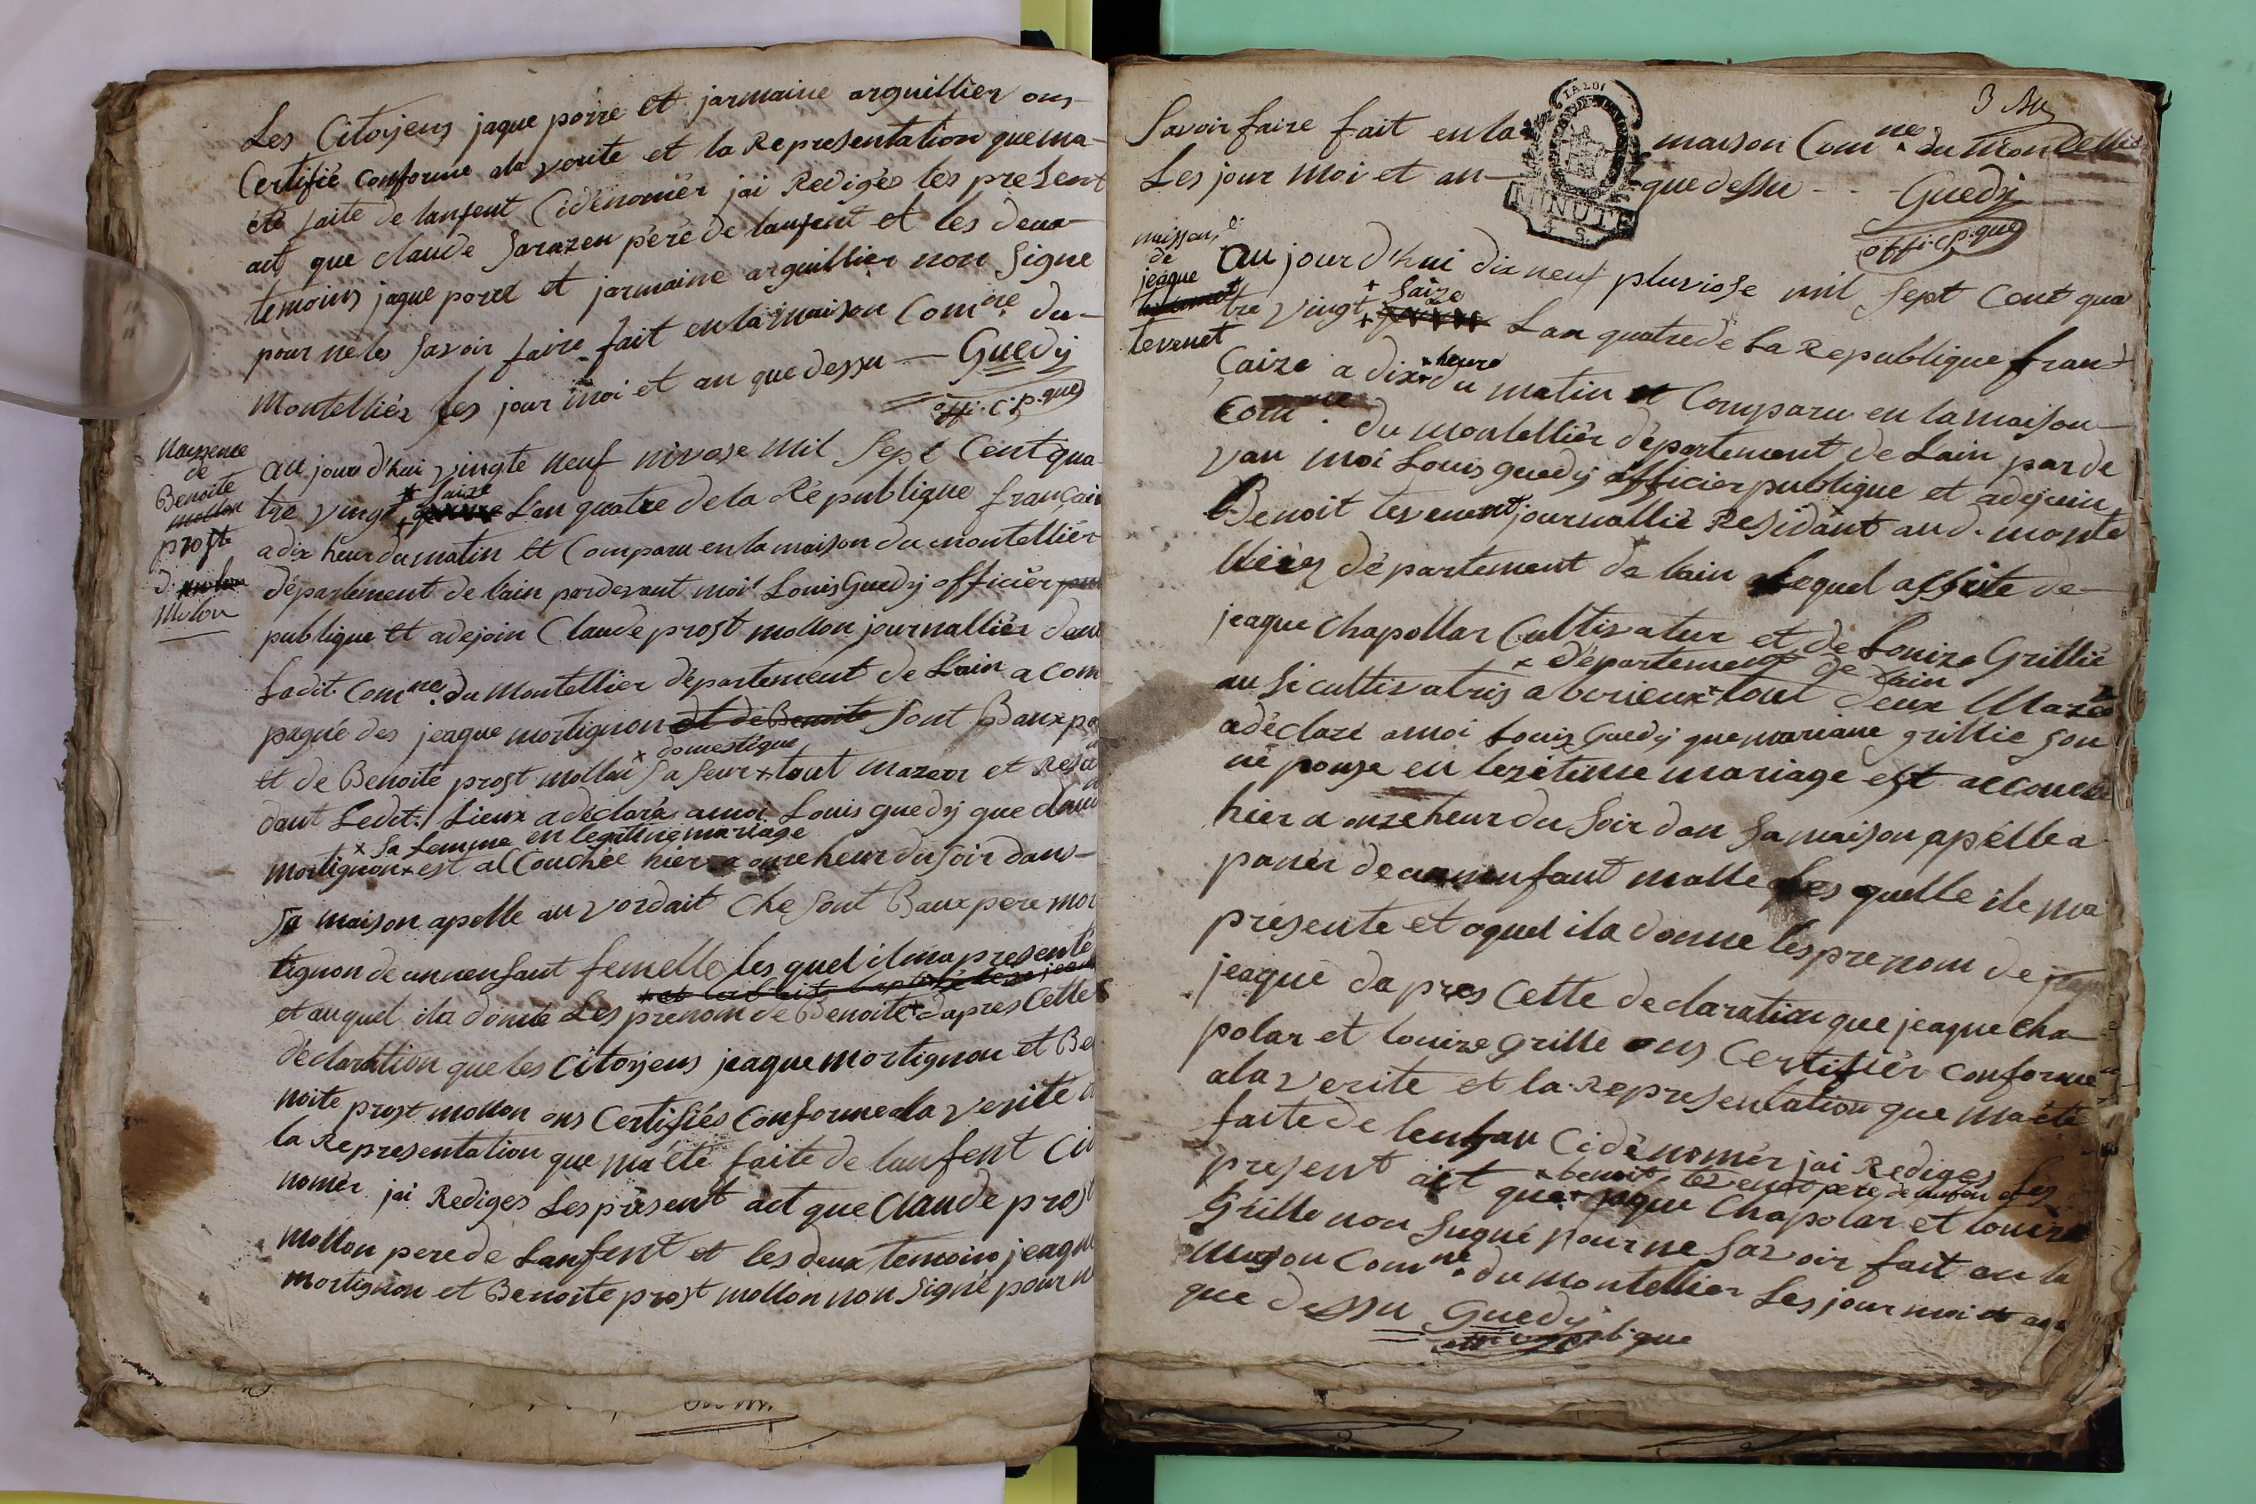 Les Citoyens jaque poire et jarmaine arguillier ons
Certifié conforme ala verite et la Representation que ma
été faite de lanfent Cidénomér jai Rediges les present
act que claude Sarazen pére de lanfent et les deux
temoins jaque poret et jarmaine arguillier non Signe
pour ne les Savoir faire fait en la maison Comne. du
Montelliér les jour moi et an que dessu — Guedy
offi. C. p. que
Naissence
de
Benoite
mollon
prost
d.
Molon
au jourd'hui vingte neuf nivose mil Sept Cent qua
tre vingt + Saize Lan quatre de la République français
a dix heur du matin Et Comparu en la maison du montelliér
département de lain pardevant moi Louis Guedy officiér
publique Et adejoin Claude prost mollon journalliér dans
Ladit. Comne. du Montellier département de Lain a com
pagné des jeaque mortignon et de Benoite Sont Baux pe
et de Benoite prost mollon Sa Seur x domestique tout mazeur et Resi
dant Ledit. Lieux a déclaré amoi Louis guedy que clau
x Sa femme en legitime mariage
mortignon x est alCouchée hier a onze heur du Soir dans
Sa maison apelle au vordait Che Sont Baux pere mor
tignon de un nenfant femelle les quel il ma presenté
et auquel ila donné Les prenom de Benoite dapres Cette
déclaration que les Citoyens jeaque mortignon et Be
noite prost mollon ons Certifiés Conforme ala verité
la Representation que ma été faite de lanfent Cid
nomér jai Rediges Les présent act que Claude prost
mollon pere de Lanfent et les deux temoins jeaque
mortignon et Benoite prost mollon non Signe pour n
3
Savoir faire fait en la maison Comne. du Montelliér
LA LOI
MINUTE
Les jour Moi et an que dessu - - - Guedy
offi. C. p. que
naissen.e
de
jeaque
tevenet
au jourd'hui dix neuf pluviose mil Sept Cent qua
tre vingt + Saize Lan quatre de La Republique fran
Caize a dix x heure du matin et Comparu en la maison
Comne. du montelliér département de Lain par de
van moi Louis guedy officier publique et adejoin
Benoit tevenent journallié Residant aud. monte
lliér département de lain Lequel assiste de
jeaque Chapollar Cultivateur et de Louize Grillié
au Si cultivatris a berieux x département de Lain tout deux Mazeu
a déclaré amoi Louis Guedy que mariane grillie Son
né pouse en lezitime mariage est alcouché
hier a onze heur du Soir dan Sa maison apéllé a
panér de un nenfant malle Les quelle ile ma
présente et aquel ila donne les prenom de
jeaque dapres Cette declaration que jeaque cha
polar et louize grille ons Certifiér conforme
ala verite et la Representation que ma été
faite de lenfan Cidénomér jai Rediges Les
present act que x benoit tevenet pere de lanfan et jaque Chapolar et louize
Grille non Signé pour ne Savoir fait en la
maison Comne. du montellier Les jour moi et an
que dessu Guedy
publique